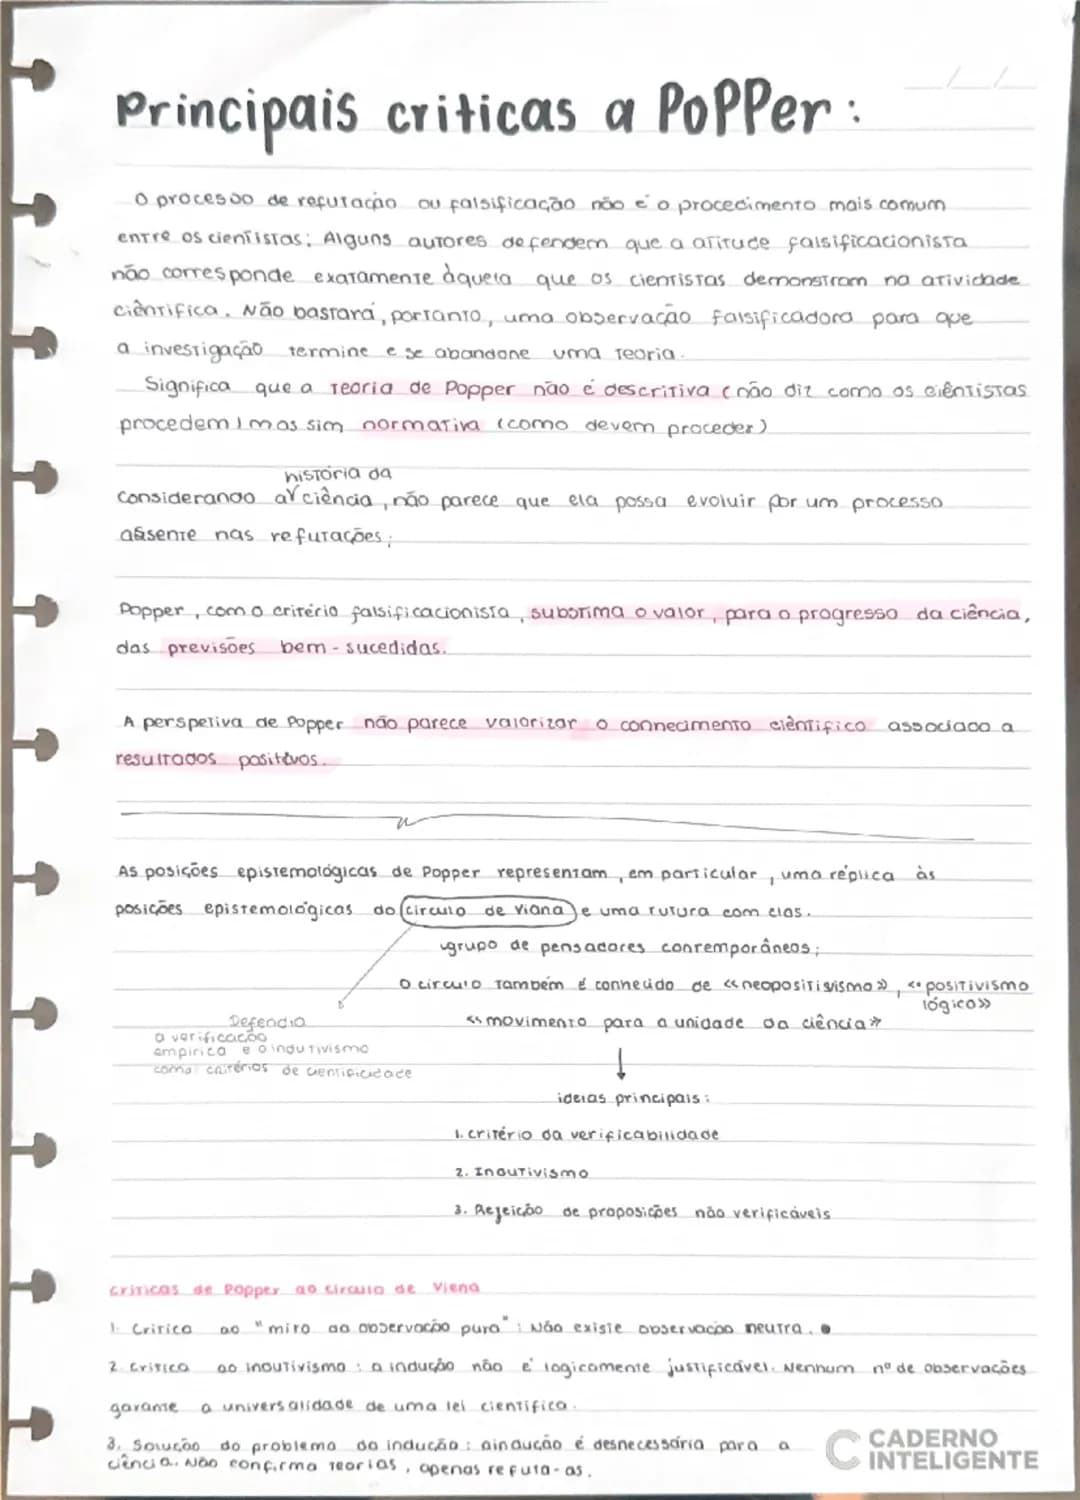 Principais criticas a Popper:
O processo de refutação ou falsificação não é o procedimento mais comum
entre os cientistas: Alguns autores defendem que a atitude falsificacionista
não corresponde exatamente àquela que os cientistas demonstram na atividade
ciêntifica. Não bastará, portanto, uma observação falsificadora para que
a investigação termine e se abandone uma teoria.
Significa que a teoria de Popper não é descritiva (não diz como os ciêntistas
procedem) mas sim normativa (como devem proceder)
história da
Considerando a ciência, não parece que ela possa evoluir por um processo
assente nas refutações;
Popper, com o critério falsificacionista, subtrima o valor, para o progresso da ciência,
das previsões bem-sucedidas.
A perspetiva de Popper não parece valorizar o conhecimento ciêntifico associado a
resultados positivos.
As posições epistemológicas de Popper representam, em particular, uma réplica às
posições epistemológicas do circulo de Viana e uma rutura com elas.
grupo de pensadores contemporâneos;
O circulo também é conhecido de «neopositivismo», «positivismo
lógico»
«movimento para a unidade da ciência»
Defendia
a verificação
empirica e o indutivismo
como critérios de cientificidade
ideias principais:
1. critério da verificabilidade
2. Indutivismo
3. Rejeição de proposições não verificáveis
criticas de Popper ao circulo de Viena
1. Critica ao "mito da observação pura": Não existe observação neutra.
2. Critica ao indutivismo: a indução não é logicamente justificável. Nenhum nº de observações
garante a universalidade de uma lei cientifica.
3. Solução do problema da indução: a indução é desnecessária para a
ciência. Não confirma teorias, apenas refuta-as.
CADERNO
INTELIGENTE